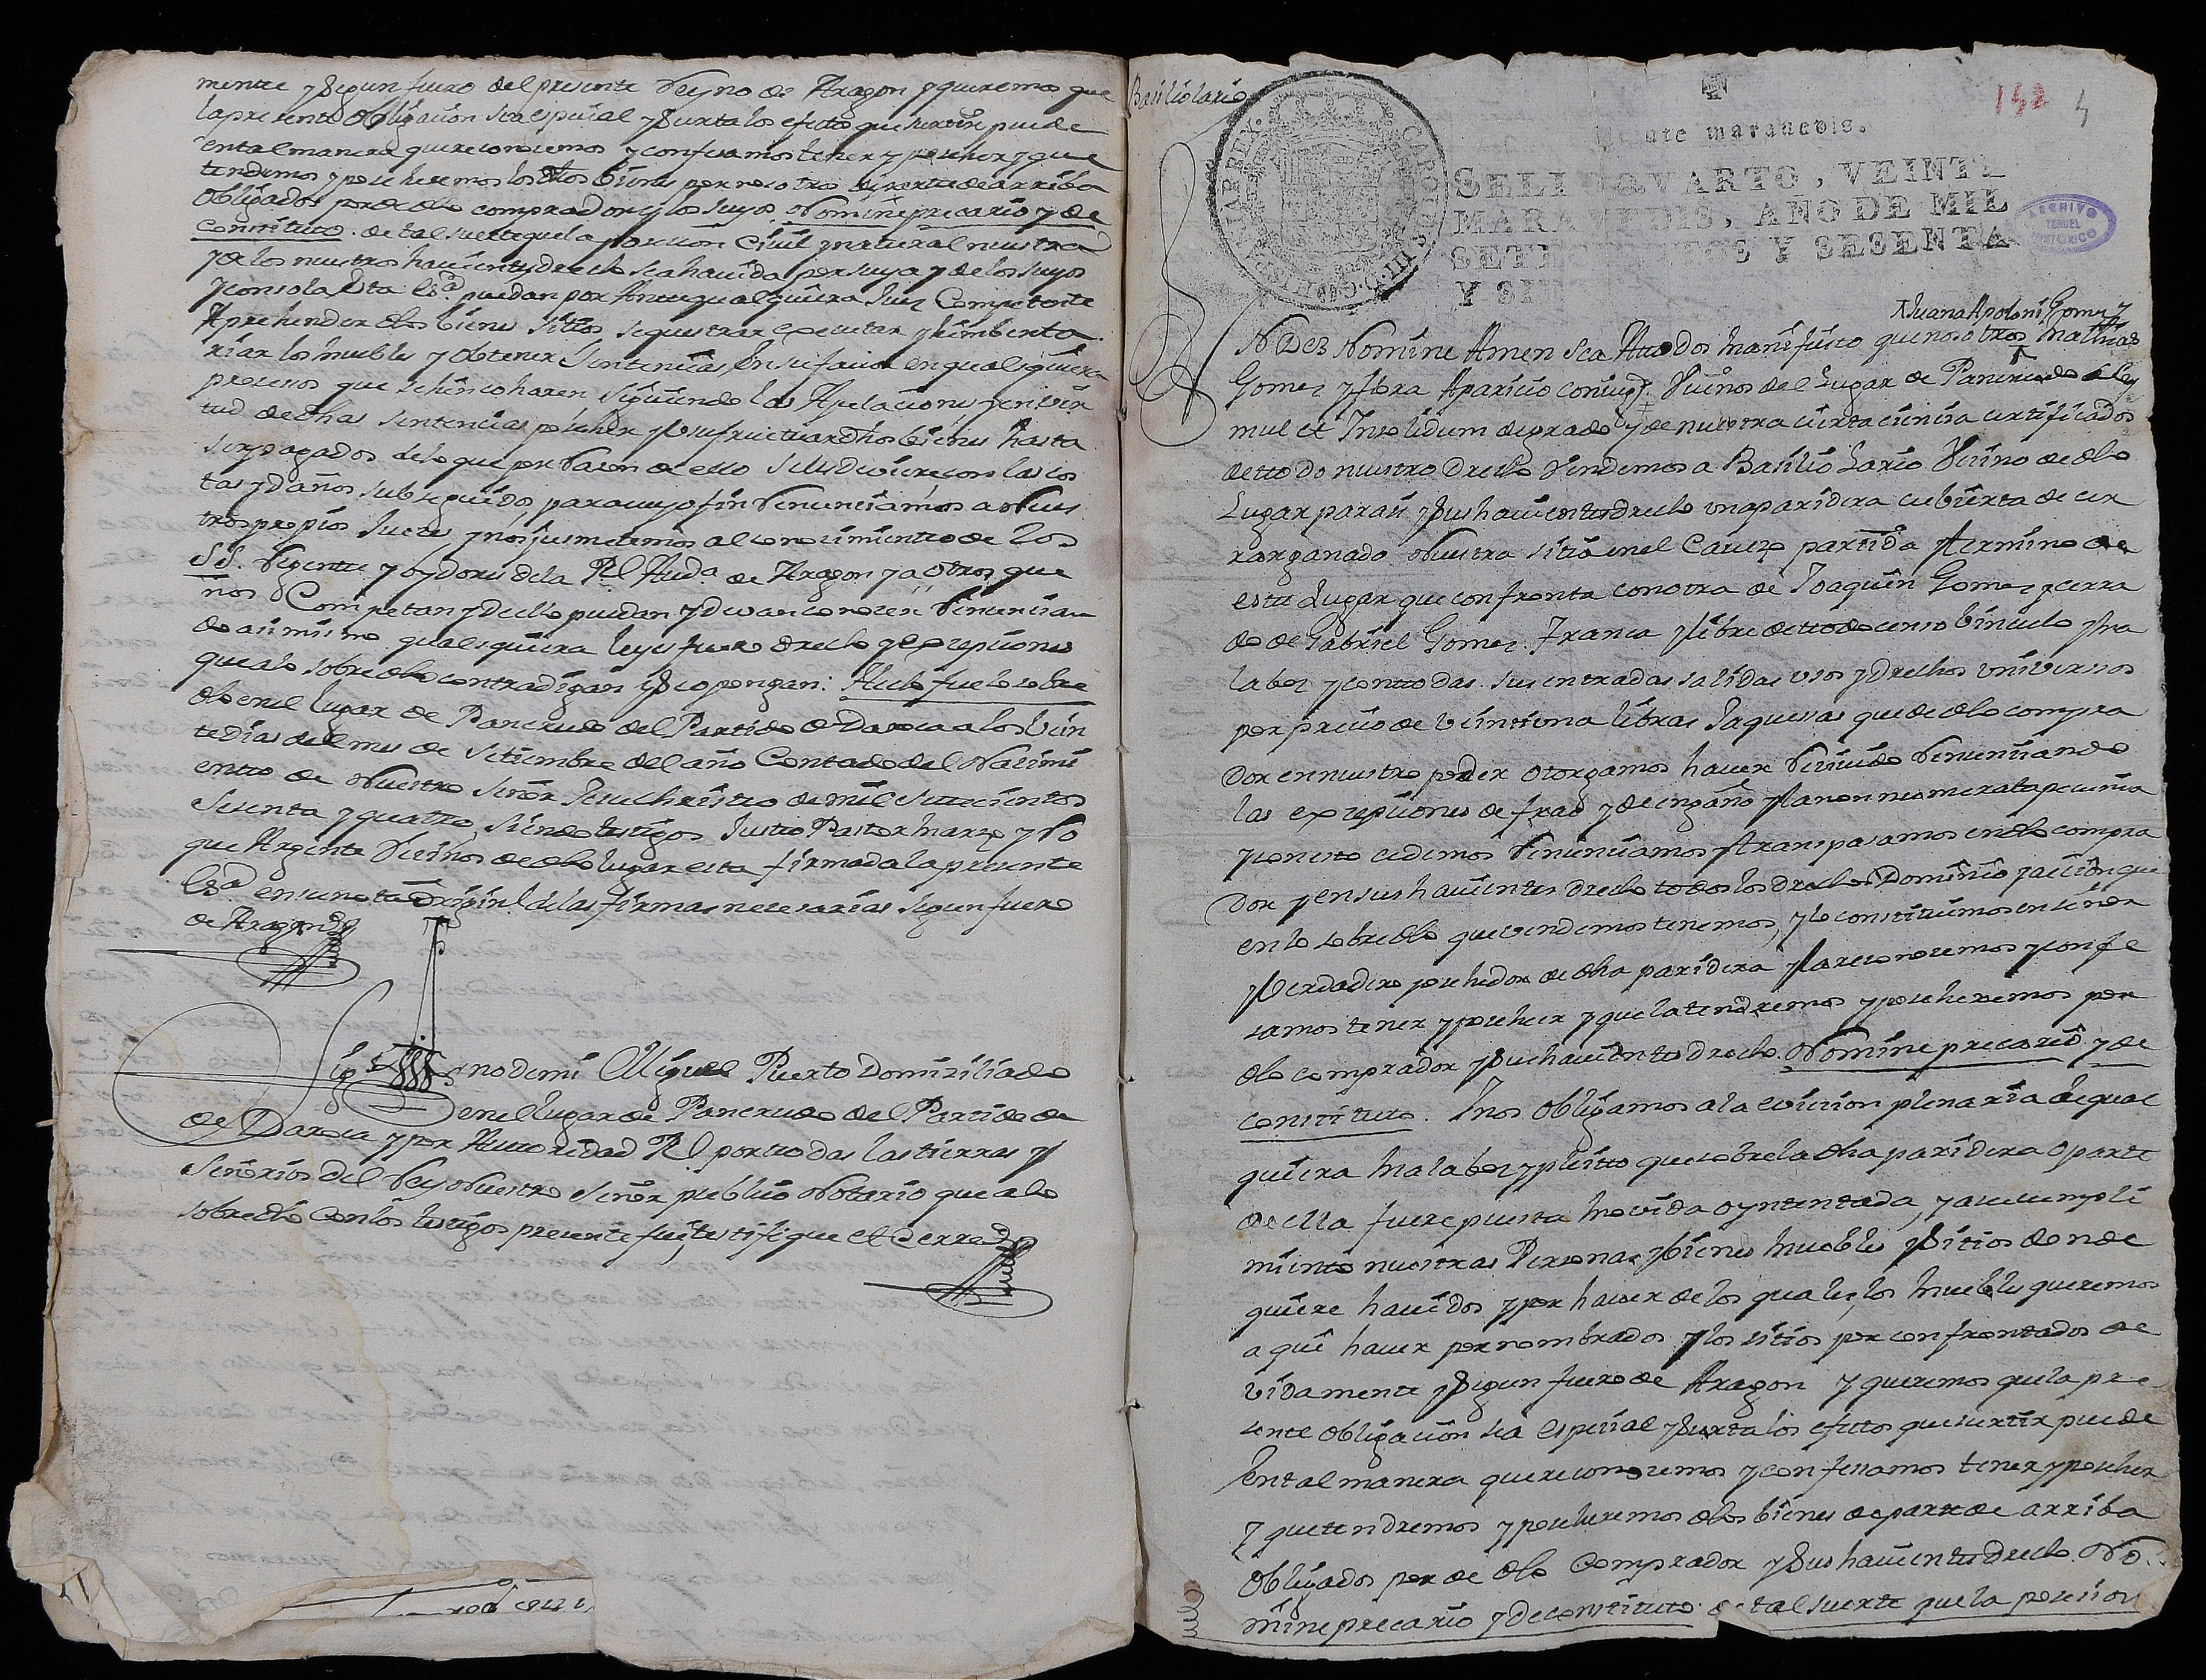 mente y Segun fuero del presente Reyno de Aragon y queremos que
la presente Obligacion sea especial y Surta los efectos que surtir puede
en tal manera que reconocemos y confesamos tener y poseher y que
tendremos y poseheremos los dhos bienes por nosotros de parte de arriba
Obligados por dho comprador y los Suyos Nomine precario y de
Constituto. de tal suerte que la posesion Civil y natural nuestra
y de los nuestros havientes drecho sea havida por suya y de los suyos
y con sola esta Essª puedan por Ante qualquiera Juez Competente
Aprehender dhos bienes Sitios sequestrar executar y Himbenta
riar los muebles y obtener Sentencias En su favor en qualesquiera
procesos que se hincoharen siguiendo las Apelaciones y en vir
tud de dhas sentencias poseher y usufructuar dhos bienes hasta
ser pagados de lo que por Razon de ello Seles deviere con las cos
tas y daños subseguidos para cuyo fin Renunciamos a Nues
tros propios Jueces y nos jusmetemos al conocimiento de los
SS. Regente y Oydores dela Rl Audª de Aragon y a otros que
nos Competan y drecho puedan y devan conocer Renuncian
do asimismo qualesquiera leyes fueros drechos y excepciones
que a lo sobredho contradigan y Se opongan: Hecho fue lo sobre
dho en el Lugar de Pancrudo del Partido de Daroca a los Vein
te dias del mes de Setiembre del año Contado del Nacimi
ento de Nuestro Señor Jesuchristo de mil Setecientos
Sesenta y quatro Siendo testigos Justo Pastor Marzo y Ro
que Argente Vecinos de dho lugar esta firmada la presente
Essª en su nota Original de las firmas necesarias Segun fuero
de Aragon
Sig no de mi Miguel Puerto Domiziliado
en el Lugar de Pancrudo del Partido de
de Daroca y por Autoridad Rl por todas las tierras y
Señorios del Rey Nuestro Señor publico Notario que a lo
sobredho con los testigos presente fui, testifique et Cerre
Basilio Lario
CAROLUS III D.G. HISPANIAR REX
Veinte maravedis.
SELLO QVARTO, VEINTE
MARAVEDIS, AÑO DE MIL
SETECIENTOS Y SESENTA
Y SI
ARCHIVO
HISTORICO
TERUEL
4
Juana Apoloni Gomez
N Dei Nomine Amen Sea Attodos Manifiesto que nosotros Mathias
Gomez y Abra Aparicio coniuges Vecinos del Lugar de Pancrudo
mul et Insolidum de grado y de nuestra cierta ciencia certificados
de todo nuestro Drecho Vendemos a Basilio Lario Vecino de dho
Lugar para si y Sus havientes drecho una paridera cubierta de cer
rar ganado Nuestra sitia en el Cavezo partida y termino de
este Lugar que confronta con otra de Joaquin Gomez y cerra
do de Gabriel Gomez. Franca y libre de todo censo binculo y ma
la boz y con todas sus entradas salidas usos y drechos universos
por precio de veintiuna libras Jaquesas que de dho compra
dor en nuestro poder otorgamos haver Recivido Renunciando
las excepciones de frao y de engaño y la non numerata pecunia
y con esto cedemos Renunciamos y transpasamos en dho compra
Dor y en sus havientes drecho todos los drechos Dominio y accion que
en lo sobredho que vendemos tenemos, y lo constituimos en señor
y Verdadero posehedor de dha paridera y la reconocemos y confe
samos tener y poseher y que la tendremos y poseheremos por
dho comprador y Sus havientes drecho. Nomine precario y de
constituto. Y nos Obligamos a la evicion plenaria de qual
quiera mala boz y pleito que sobre la dha paridera o parte
de ella fuere puesta movida o yntentada, y a su cumpli
miento nuestras Personas y bienes muebles y Sitios donde
quiere havidos y por haver de los quales los muebles queremos
aqui haver por nombrados y los sitios por confrontados de
vidamente y Segun fuero de Aragon y queremos que la pre
sente obligacion sea especial y Surta los efectos que surtir puede
En tal manera que reconocemos y confesamos tener y poseher
Y que tendremos y poseheremos dhos bienes de parte de arriba
Obligados por de dho Comprador y Sus havientes drecho. No
mine precario y de constituto de tal suerte que la posesion